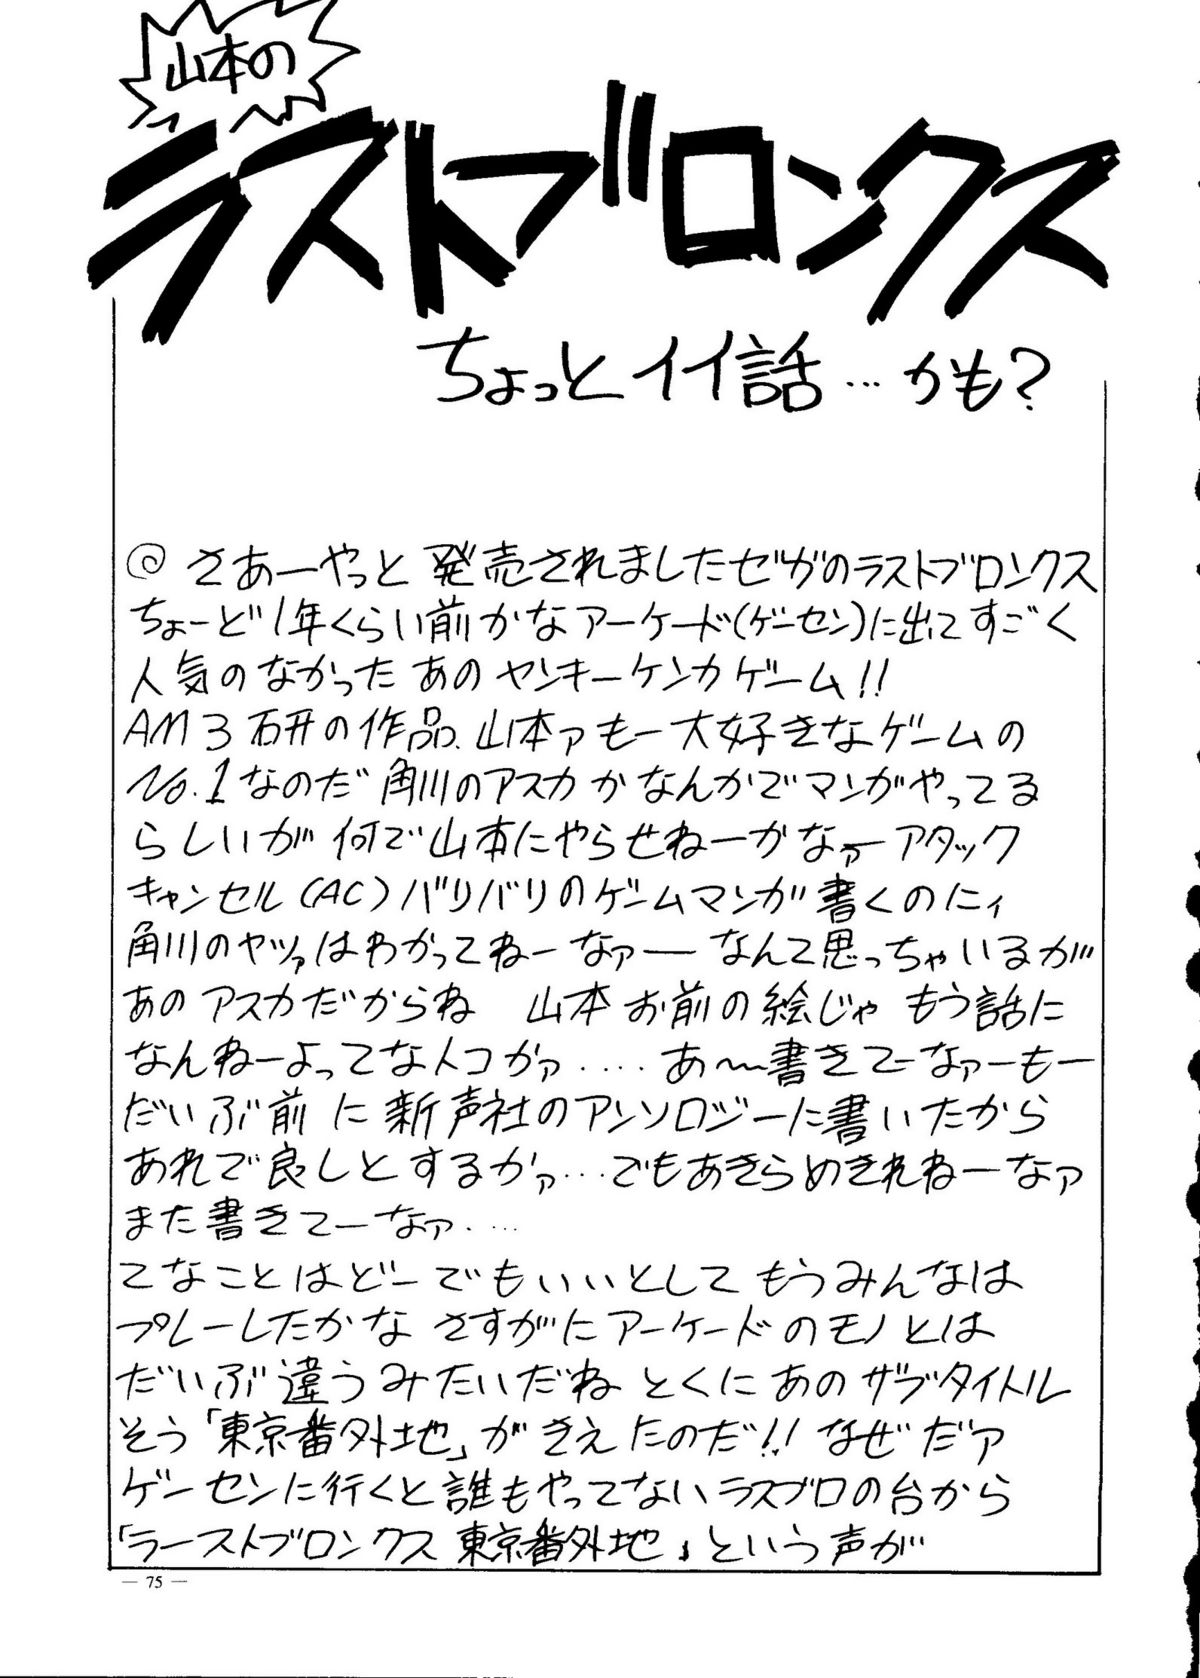 山本の
ラストブロンクス
ちょっとイイ話…かも?
◎さあーやっと発売されましたゼガのラストブロンクス
ちょーど1年くらい前かなアーケード(ゲーセン)に出てすごく
人気のなかったあのヤンキーケンカゲーム!!
AM3研の作品、山本ァもー大好きなゲームの
No.1なのだ角川のアスカかなんかでマンガやってる
らしいが何で山本にやらせねーかなァーアタック
キャンセル(AC)バリバリのゲームマンガ書くのにィ
角川のヤツァはわかってねーなァーなんて思っちゃいるが
あのアスカだからね 山本お前の絵じゃもう話に
なんねーよってなトコかァ‥‥あ〜書きてーなァーもー
だいぶ前に新声社のアンソロジーに書いたから
あれで良しとするかァ…でもあきらめきれねーなァ
また書きてーなァ‥‥
てなことはどーでもいいとしてもうみんなは
プレーしたかなさすがにアーケードのモノとは
だいぶ違うみたいだねとくにあのサブタイトル
そう「東京番外地」がきえたのだ!!なぜだァ
ゲーセンに行くと誰もやってないラスブロの台から
「ラーストブロンクス東京番外地」という声が
— 75 —